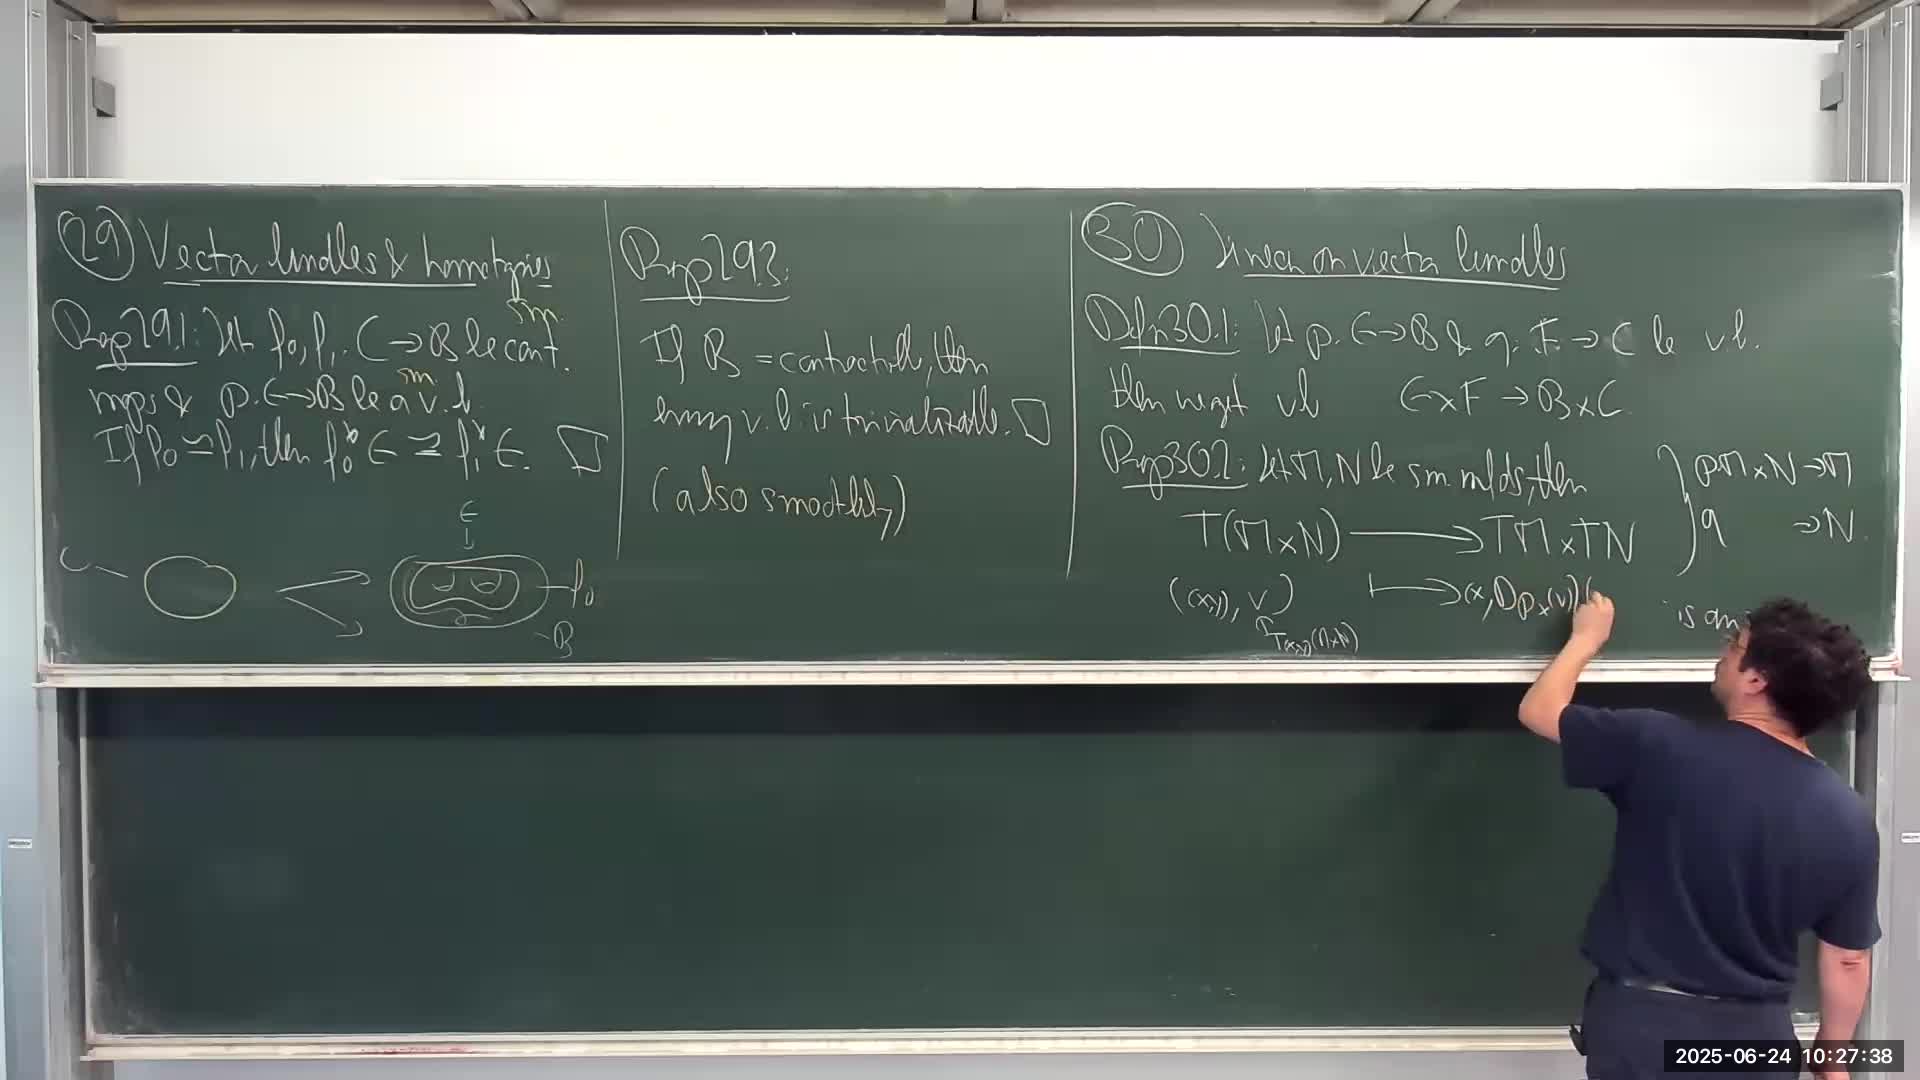 29 Vector bundles & homotopies
Prop 29.1: Let f₀, f₁: C → B be cont.
sm.
maps & p: E → B be a v.b.
sm.
If f₀ ≃ f₁, then f₀*E ≅ f₁*E. □
E
↓
C
f₀
B
Prop 29.3:
If B = contractible, then
every v.b. is trivializable. □
(also smoothly)
30 on vector bundles
Defn 30.1: Let p: E → B & q: F → C be v.b.
then we get vb E×F → B×C.
Prop 30.2: Let M, N be sm. mflds, then
T(M×N) → TM×TN
((x,y), v) ↦ (x, Dpₓ(v)) (
T₍ₓ,ᵧ₎(M×N)
p: M×N → M
q → N
is an
2025-06-24 10:27:38